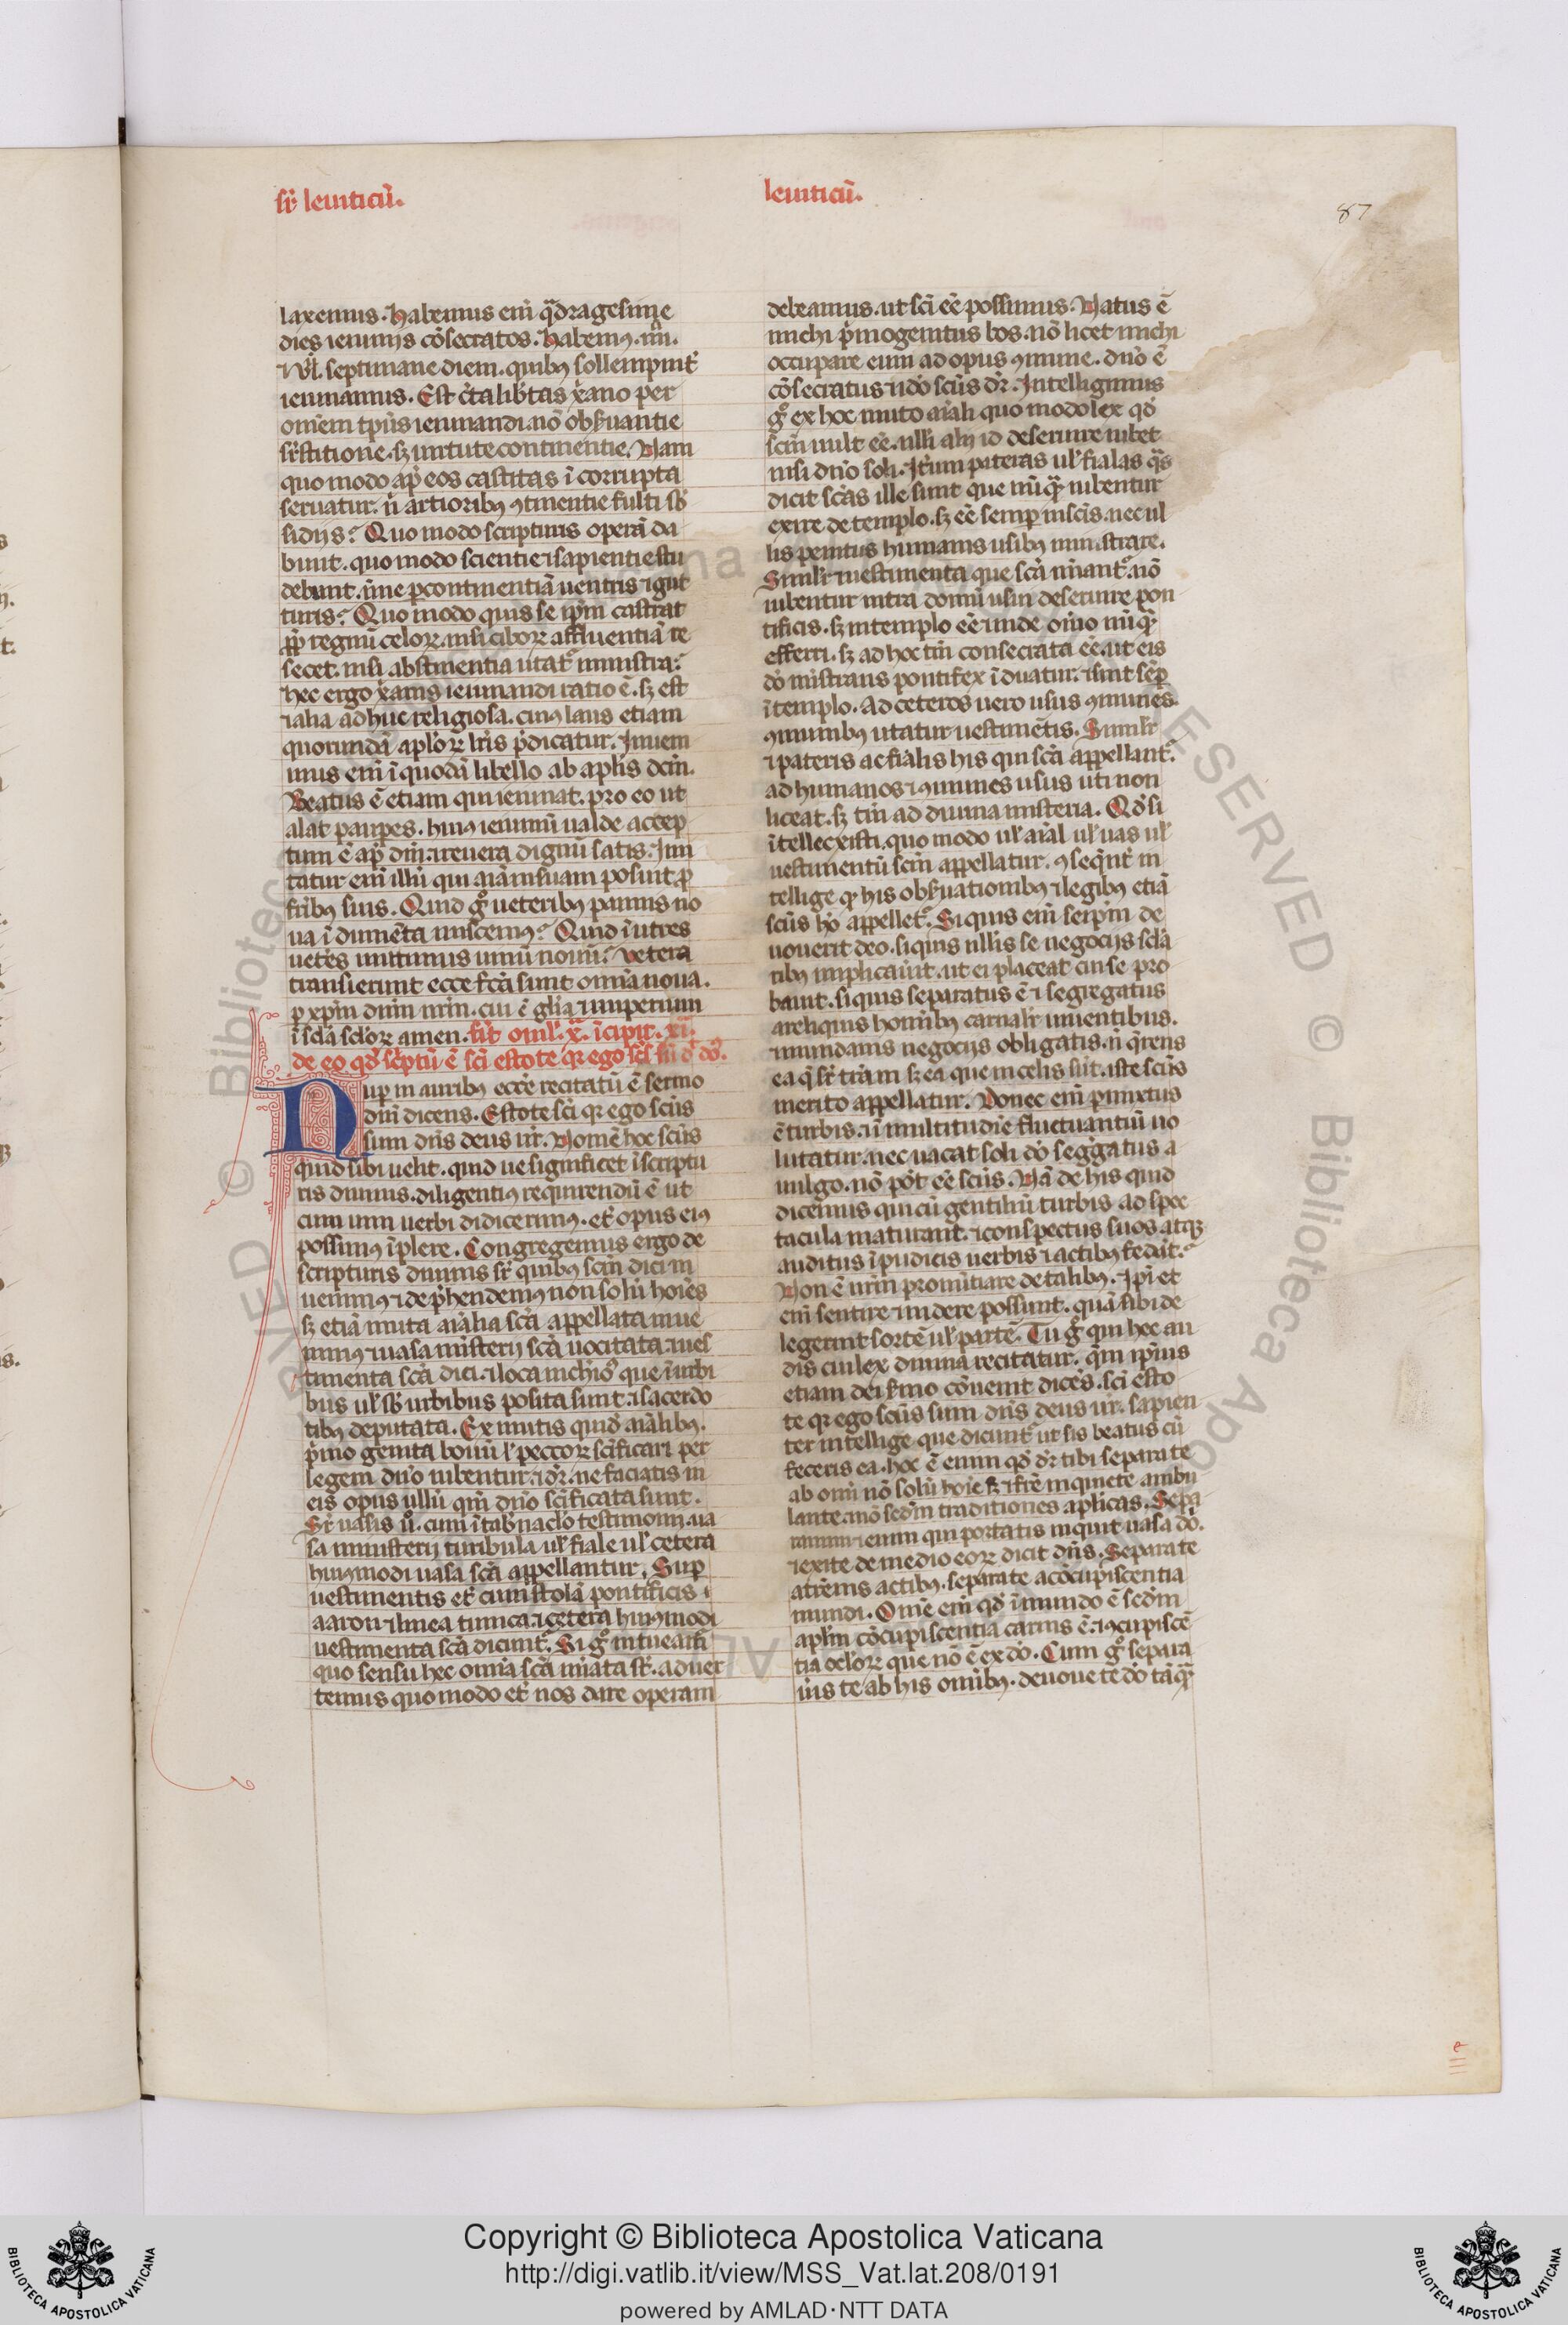 sr̄ leuiticū.
leuiticū.
87
laxemus. Habemus em̄ q̄dragesime
dies ieiunijs cōsecratos. Habemꝰ .iiij.
⁊ .vi. septimane diem. quibꝫ sollempnit̄
ieiunamus. Est c̄ta lib̄tas xp̄iano per
om̄em tp̄us ieiunandi. nō obs̄uantie
sr̄stitione. sꝫ uirtute continentie. Nam
quo modo ap̄ eos castitas ī corrupta
seruatur. n̄ artioribꝫ ꝯtinentie fulti sb̄
sidijs? Quo modo scripturis operā da
bunt. quo modo scientie ⁊ sapientie stu
debunt. nīne ꝑ continentiā uentris ⁊ gut
turis? Quo modo quis se ip̄m castrat
ꝓp̄ regnū celoꝝ. nisi ciboꝝ affluentiā re
secet. nisi abstinentia utat᷑ ministra?
hec ergo xp̄ianis ieiunandi ratio ē. sꝫ est
⁊ alia adhuc religiosa. cuiꝰ laus etiam
quorundā ap̄loꝝ lr̄is p̄dicatur. Inuen
imus em̄ ī quodā libello ab ap̄lis dc̄m.
Beatus ē etiam qui ieiunat. pro eo ut
alat pauꝑes. huiꝰ ieiuniū ualde accep
tum ē ap̄ dm̄. ⁊ reuera dignū satis. Imi
tatur em̄ illū qui aīam suam posuit ꝓ
fr̄ibꝫ suis. Quid gͦ ueteribꝫ pannis no
ua ī dumēta miscemꝰ? Quid ī utres
ueteres mittimus uinū nouū? Vetera
transierunt ecce fc̄a sunt omīa noua.
ꝑ xp̄m dn̄m nr̄m. cui ē gl̄ia ⁊ imperium
ī sc̄la sc̄loꝝ amen. fīt oml̄. x. īcipit. xi.
de eo qd̄ sc̄ptū ē sc̄i estote qꝛ ego sc̄s sū d̄ dō.
Nuꝑ in auribꝫ ecc̄e recitatū ē sermo
dm̄ dicens. Estote sc̄i qꝛ ego sc̄us
sum dn̄s deus ur̄. Nomē hoc sc̄us
quid sibi uelit. quid ue significet ī scriptu
ris diuinis. diligentiꝰ requirendū ē ut
cum uim uerbi didicerimꝰ. et̄ opus eiꝰ
possimꝰ īplere. Congregemus ergo de
scripturis diuinis sr̄ quibꝫ sc̄m dici in
uenimꝰ ⁊ dep̄hendemꝰ non solū hoīes
sꝫ etiā muta aīalia sc̄a appellata. inue
nimꝰ ⁊ uasa misterij sc̄a uocitata. ⁊ ues
timenta sc̄a dici. ⁊ loca nichiō que ī urbi
bus ul̄ sb̄ urbibus posita sunt. ⁊ sacerdo
tibꝫ deputata. Ex mutis quid̄ aīalibꝫ.
p̄mo genita bouū l̄ peccoꝝ sc̄ificari per
legem dn̄o iubentur. ⁊ dr̄. ne faciatis in
eis opus ullū qm̄ dn̄o sc̄ificata sunt.
Sr̄ uasis uͦ. cum ī tab̄naclō testimonii. ua
sa ministerij turibula ul̄ fiale ul̄ cetera
huiꝰmodi uasa sc̄a appellantur. Suꝑ
uestimentis et̄ cum stolā pontificis ⁊
aaron ⁊ linea tunica. ⁊ cetera huiꝰmodi
uestimenta sc̄a dicunt᷑. Si gͦ intueamr̄
quo sensu hec omīa sc̄a nīata st̄. aduer
temus quo modo et̄ nos dare operam
debeamus. ut sc̄i eē possimus. Natus ē
michi p̄mogenitus bos. nō licet michi
occupare eum ad opus ꝯmune. dn̄o ē
cōsecratus ⁊ id̄o sc̄us dr̄. Intelligimus
gͦ ex hoc muto aīali quo modo lex qd̄
sc̄m uult eē. nlli alij id deseruire iubet
nisi dn̄o soli. It̄um pateras ul̄ fialas q̄s
dicit sc̄as ille sunt que nūq̄ iubentur
exire de templo. sꝫ eē semꝑ in sc̄is. nec ul
lis penitus humanis usibꝫ ministrare.
Simil̄r ⁊ uestimenta que sc̄a nīant᷑. nō
iubentur intra domū usui deseruire pon
tificis. sꝫ in templo eē ⁊ inde om̄o nūq̄
efferri. sꝫ ad hoc tm̄ consecrata eē. ut eis
dō mīstrans pontifex īduatur. ⁊ sint sēꝑ
ī templo. Ad ceteros uero usus ꝯmunes
ꝯmunibꝫ utatur uestimētis. Simil̄r
⁊ pateris ac fialis his qui sc̄a appellant᷑.
ad humanos ⁊ ꝯmunes usus uti non
liceat. sꝫ tm̄ ad diuina misteria. Qd̄ si
ītellexisti. quo modo ul̄ aīal ul̄ uas ul̄
uestimentū sc̄m appellatur. ꝯseq̄nt̄ in
tellige qꝛ his obs̄uationibꝫ ⁊ legibꝫ etiā
sc̄us hō appellet᷑. Si quis em̄ seip̄m de
uouerit deo. si quis nllis se negocijs sc̄la
ribꝫ implicauit. ut ei placeat cui se pro
bauit. si quis separatus ē ⁊ segregatus
a reliquis hoībꝫ carnalr̄ uiuentibus.
⁊ mundanis negocijs obligatis. n̄ q̄rens
ea q̄ sr̄ trām sꝫ ea que in celis sūt. iste sc̄us
merito appellatur. Donec em̄ ꝑmixtus
ē turbis. ⁊ ī multitudīe fluctuantiū uo
lutatur. nec uacat soli dō. segg̃atus a
uulgo. nō pōt eē sc̄us. Nā de his quid
dicemus qui cū gentiliū turbis ad spec
tacula maturant. ⁊ conspectus suos atqꝫ
auditus īpudicis uerbis ⁊ actibꝫ fedāt?
Non ē nr̄m pronūtiare de talibꝫ. Ip̄i et
em̄ sentire ⁊ uidere possunt. quā sibi de
legerint sortē ul̄ partē. Tu gͦ qui hec au
dis cui lex diuina recitatur. q̄m ip̄ius
etiam dei s̄mo cōuenit dicēs. sc̄i esto
te qꝛ ego sc̄us sum dn̄s deus ur̄. sapien
ter intellige que dicunt᷑ ut sis beatus cū
feceris ea. hoc ē enim qd̄ dr̄ tibi separate
ab om̄i nō solū hoīe sꝫ ⁊ fr̄e inquiete ambu
lante. ⁊ nō sed̄m traditiones ap̄licas. Sepa
ramini enim qui portatis inquit uasa dō.
⁊ exite de medio eoꝝ dicit dn̄s. Separate
a tr̄enis actibꝫ. separate a cōcupiscentia
mundi. Om̄e em̄ qd̄ ī mundo ē sed̄m
apl̄m cōcupiscentia carnis ē. ⁊ ꝯcupiscē
tia oc̄loꝝ que nō ē ex dō. Cum gͦ separa
uis te ab his om̄ibꝫ. deuoue te dō tāq̄
Copyright © Biblioteca Apostolica Vaticana
http://digi.vatlib.it/view/MSS_Vat.lat.208/0191
powered by AMLAD·NTT DATA